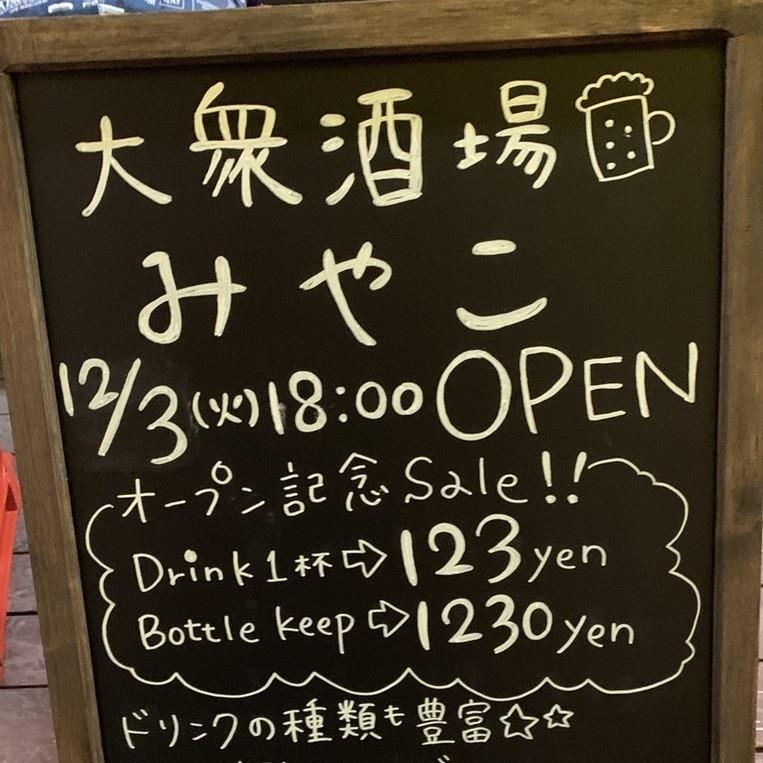 大衆酒場
みやこ
12/3(火)18:00 OPEN
オープン記念 Sale!!
Drink 1杯⇨123yen
Bottle keep⇨1230yen
ドリンクの種類も豊富☆☆